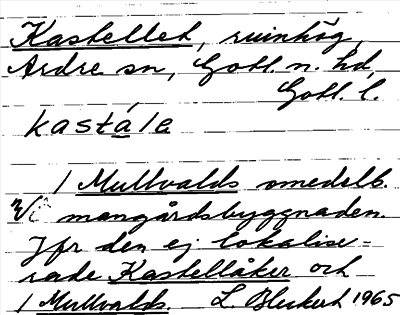 Kastellet, ruinhög,
Ardre sn, Gotl. n. hd,
Gotl. l.
kastále
1 Mullvalds omedelb.
V i mangårdsbyggnaden.
Jfr den ej lokalise=
rade Kastellåker och
1 Mullvalds. L. Bleckert 1965